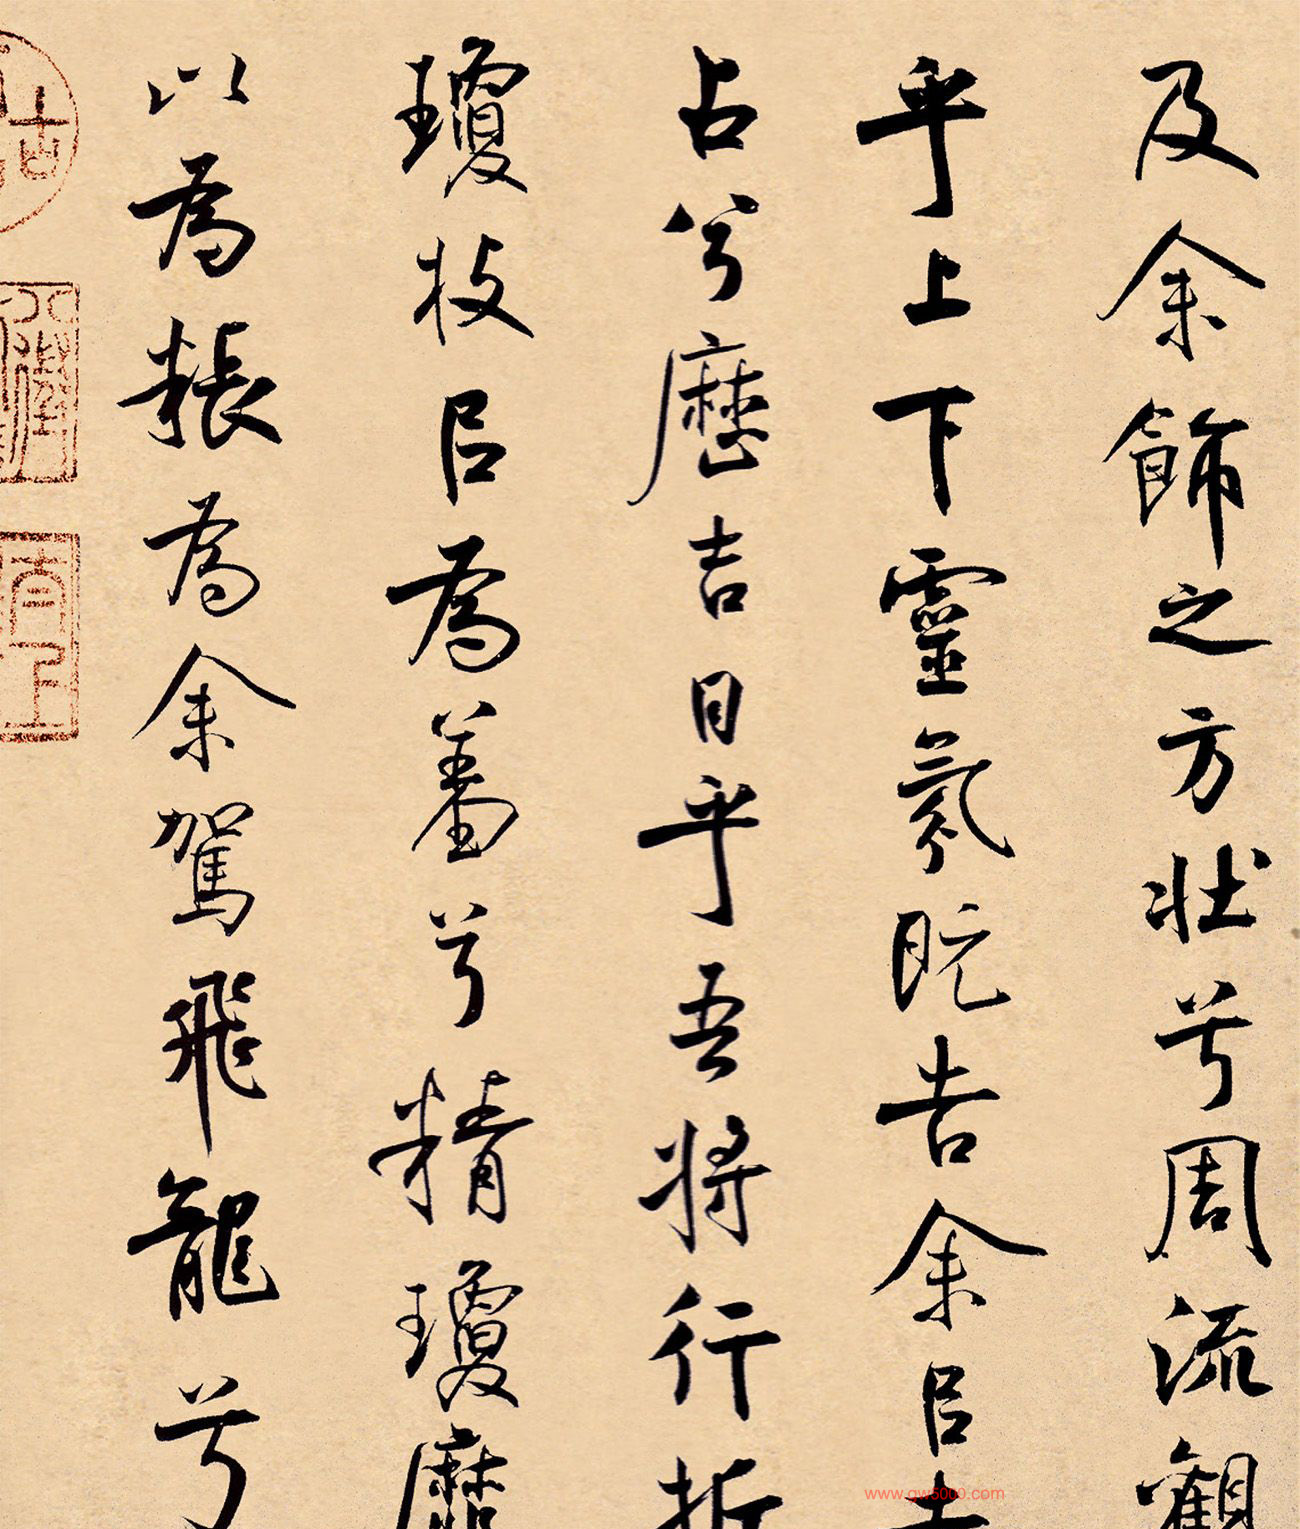 及余飾之方壮兮周流觀
乎上下靈氛既告余㠯吉
占兮歷吉日乎吾將行折
瓊枝㠯為羞兮精瓊靡
以為粻為余駕飛龍兮
www.gw5000.com